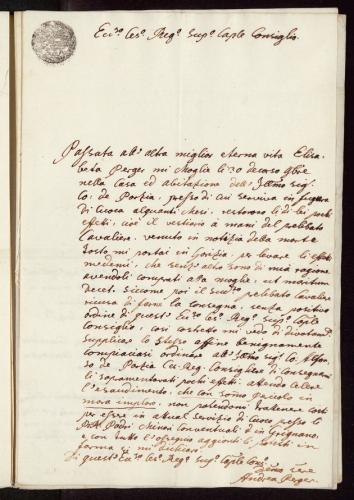 Ecc.º Ces.º Reg.º Sup.º Caple Consiglio.
Passata all' altra miglior eterna vita Elisa-
beta Perger mia Moglie li 30 decorso 9bre
nella Casa ed abitazione dell' Illmo sig.
Co: de Porzia, presso di cui serviva in figura
di Cuoca alquanti Mesi, restorono li di lei pochi
effetti, cioè il vestiario a mani del prelibato
Cavaliere, venuto in notizia della morte
tosto mi portai in Gorizia, per levare li effetti
medemi, che senz' altro sono di mia ragione
avendoli comprati alla moglie, ut maritum
decet. Siccome poi il sud.º prelibato Cavaliere
ricusa di farne la consegna, senza positivo
ordine di quest' Ecc.º Ces.º Reg.º Sup.º Caple
Consiglio, così costretto mi vedo di divotam.
supplicare lo stesso affine benignamente
compiacciasi ordinare all' Illmo sig. Co: Alfon-
so de Porzia Ces. Reg. Consigliere di consegnarmi
li sopramentovati pochi effetti, attendo celere
l'esaudimento, che con sommo pericolo in
mora imploro, non potendomi trattenere costì
per essere in attual servizio di Cuoco presso li
PP. Padri Minori Conventuali di Grignano,
e con tutto l'ossequio aggionti li soliti in
forma si mi dichiaro.
Di quest' Ecc.º Ces.º Reg.º Sup.º Caple Cons.
Andrea Perger.